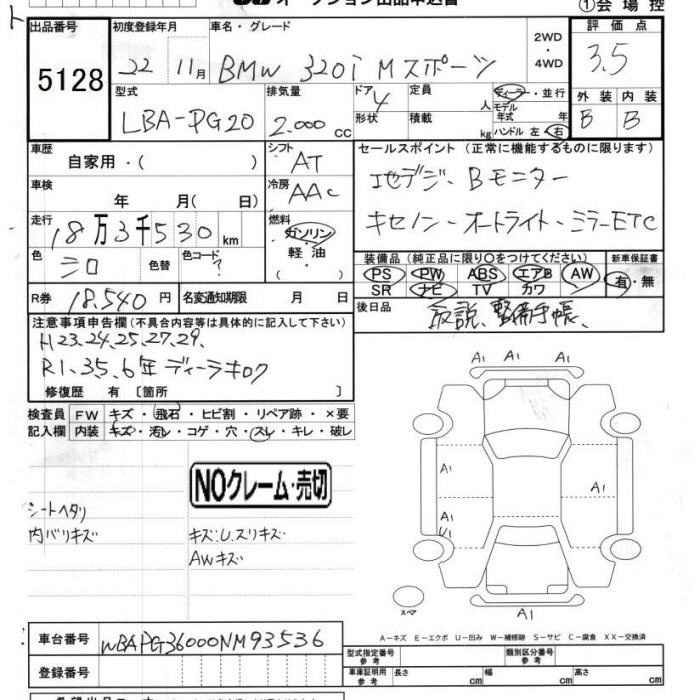 ①会場控
出品番号 5128
初度登録年月 22 11月
車名・グレード BMW 320i Mスポーツ
2WD・4WD
評価点 3.5
型式 LBA-PG20
排気量 2.000cc
ドア 4
形状
定員 人
積載 kg
ディーラー・並行
モデル年式 年
ハンドル 左・右
外装 B
内装 B
車歴 自家用・( )
シフト AT
車検 年 月( 日)
冷房 AAC
走行 18万3千530km
燃料 ガソリン・軽油( )
色 シロ
色替
色コード ?
R券 18.540円
名変通知期限 月 日
セールスポイント (正常に機能するものに限ります)
地デジ、Bモニター
キセノン-オートライト-ミラーETC
装備品(純正品に限り○をつけてください)
新車保証書 有・無
PS PW ABS エアB AW
SR ナビ TV カワ
後日品 取説、整備手帳、
注意事項申告欄(不具合内容等は具体的に記入して下さい)
H23.24.25.27.29.
R1.3.5.6年ディーラキロク
修復歴 有[箇所 ]
検査員記入欄
FW キズ・飛石・ヒビ割・リペア跡・×要
内装 キズ・汚レ・コゲ・穴・スレ・キレ・破レ
NOクレーム・売切
シートヘタリ
内バリキズ
キズ:U.スリキズ
AWキズ
A1 A1 A1
A1 A1
A1
U1
スペア
A1
A－キズ E－エクボ U－凹み W－補修跡 S－サビ C－腐食 XX－交換済
車台番号 WBAPG36000NM93536
登録番号
型式指定番号 参考
類別区分番号 参考
車庫証明用 参考 長さ cm 幅 cm 高さ cm